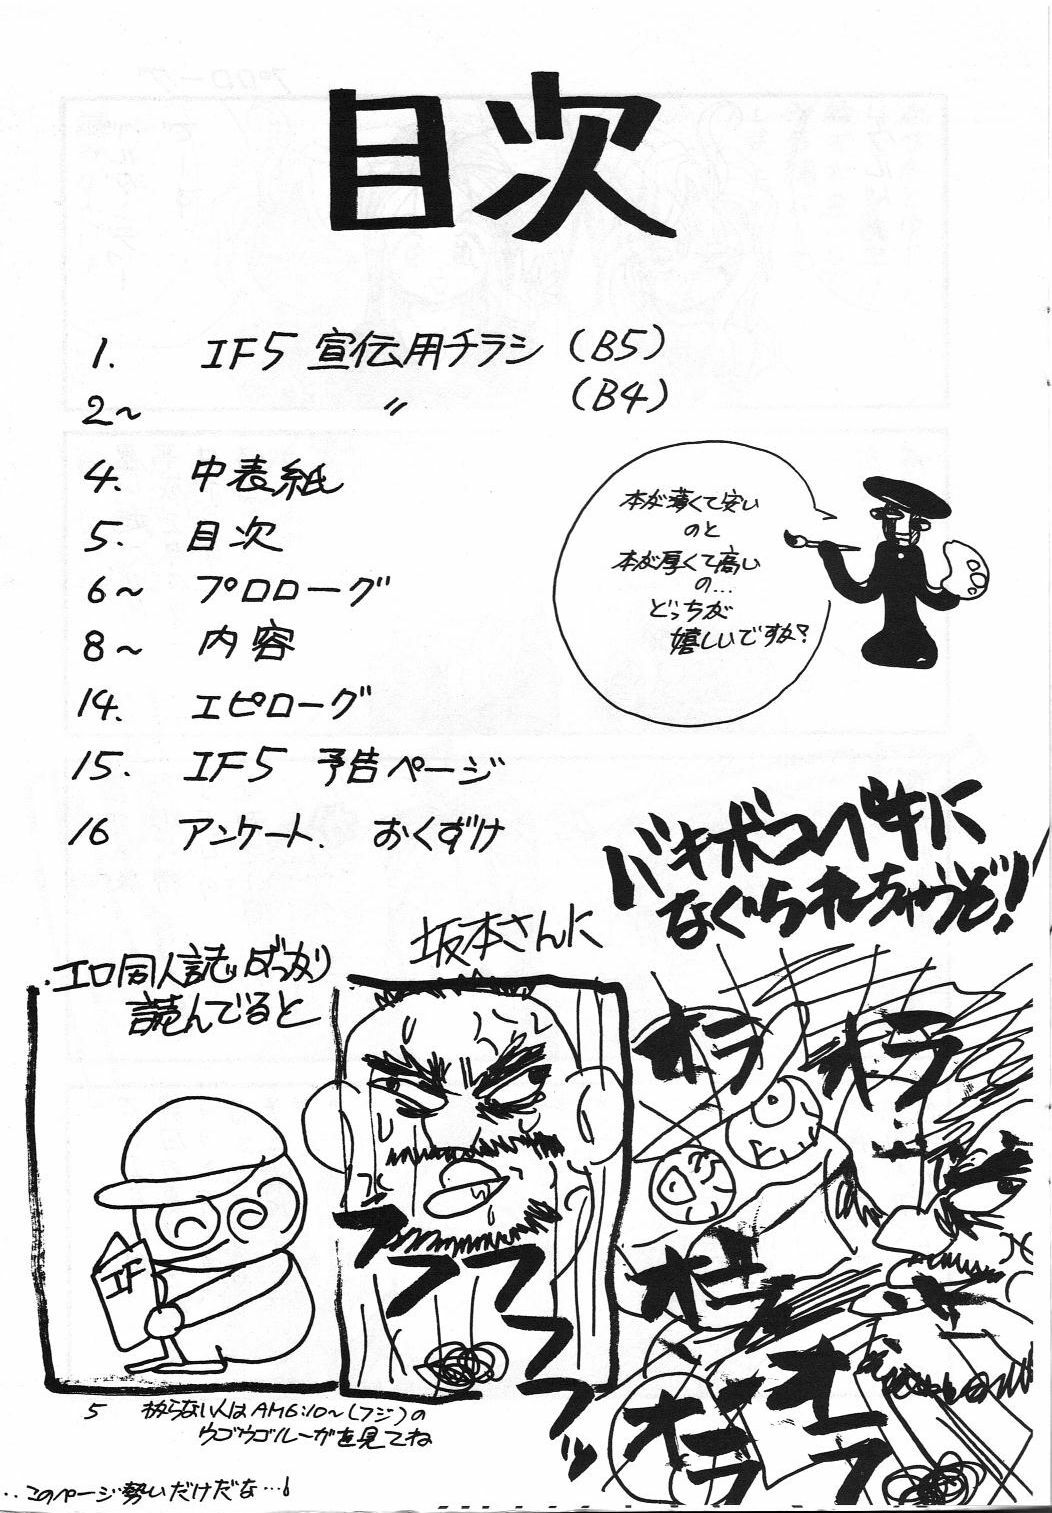 目次
1. IF5 宣伝用チラシ (B5)
2~ 〃 (B4)
4. 中表紙
5. 目次
6~ プロローグ
8~ 内容
14. エピローグ
15. IF5 予告ページ
16 アンケート. おくずけ
本が薄くて安い
のと
本が厚くて高い
の…
どっちが
嬉しいですか?
エロ同人誌ばっかり
読んでると
坂本さんに
バキボコベキに
なぐられちゃうぞ!
IF
フフフフフッ
オラ
オラ
オラ
オラ
オラ
5 わからない人はAM6:10~(フジ)の
ウゴウゴルーガを見てね
‥このページ勢いだけだな…!